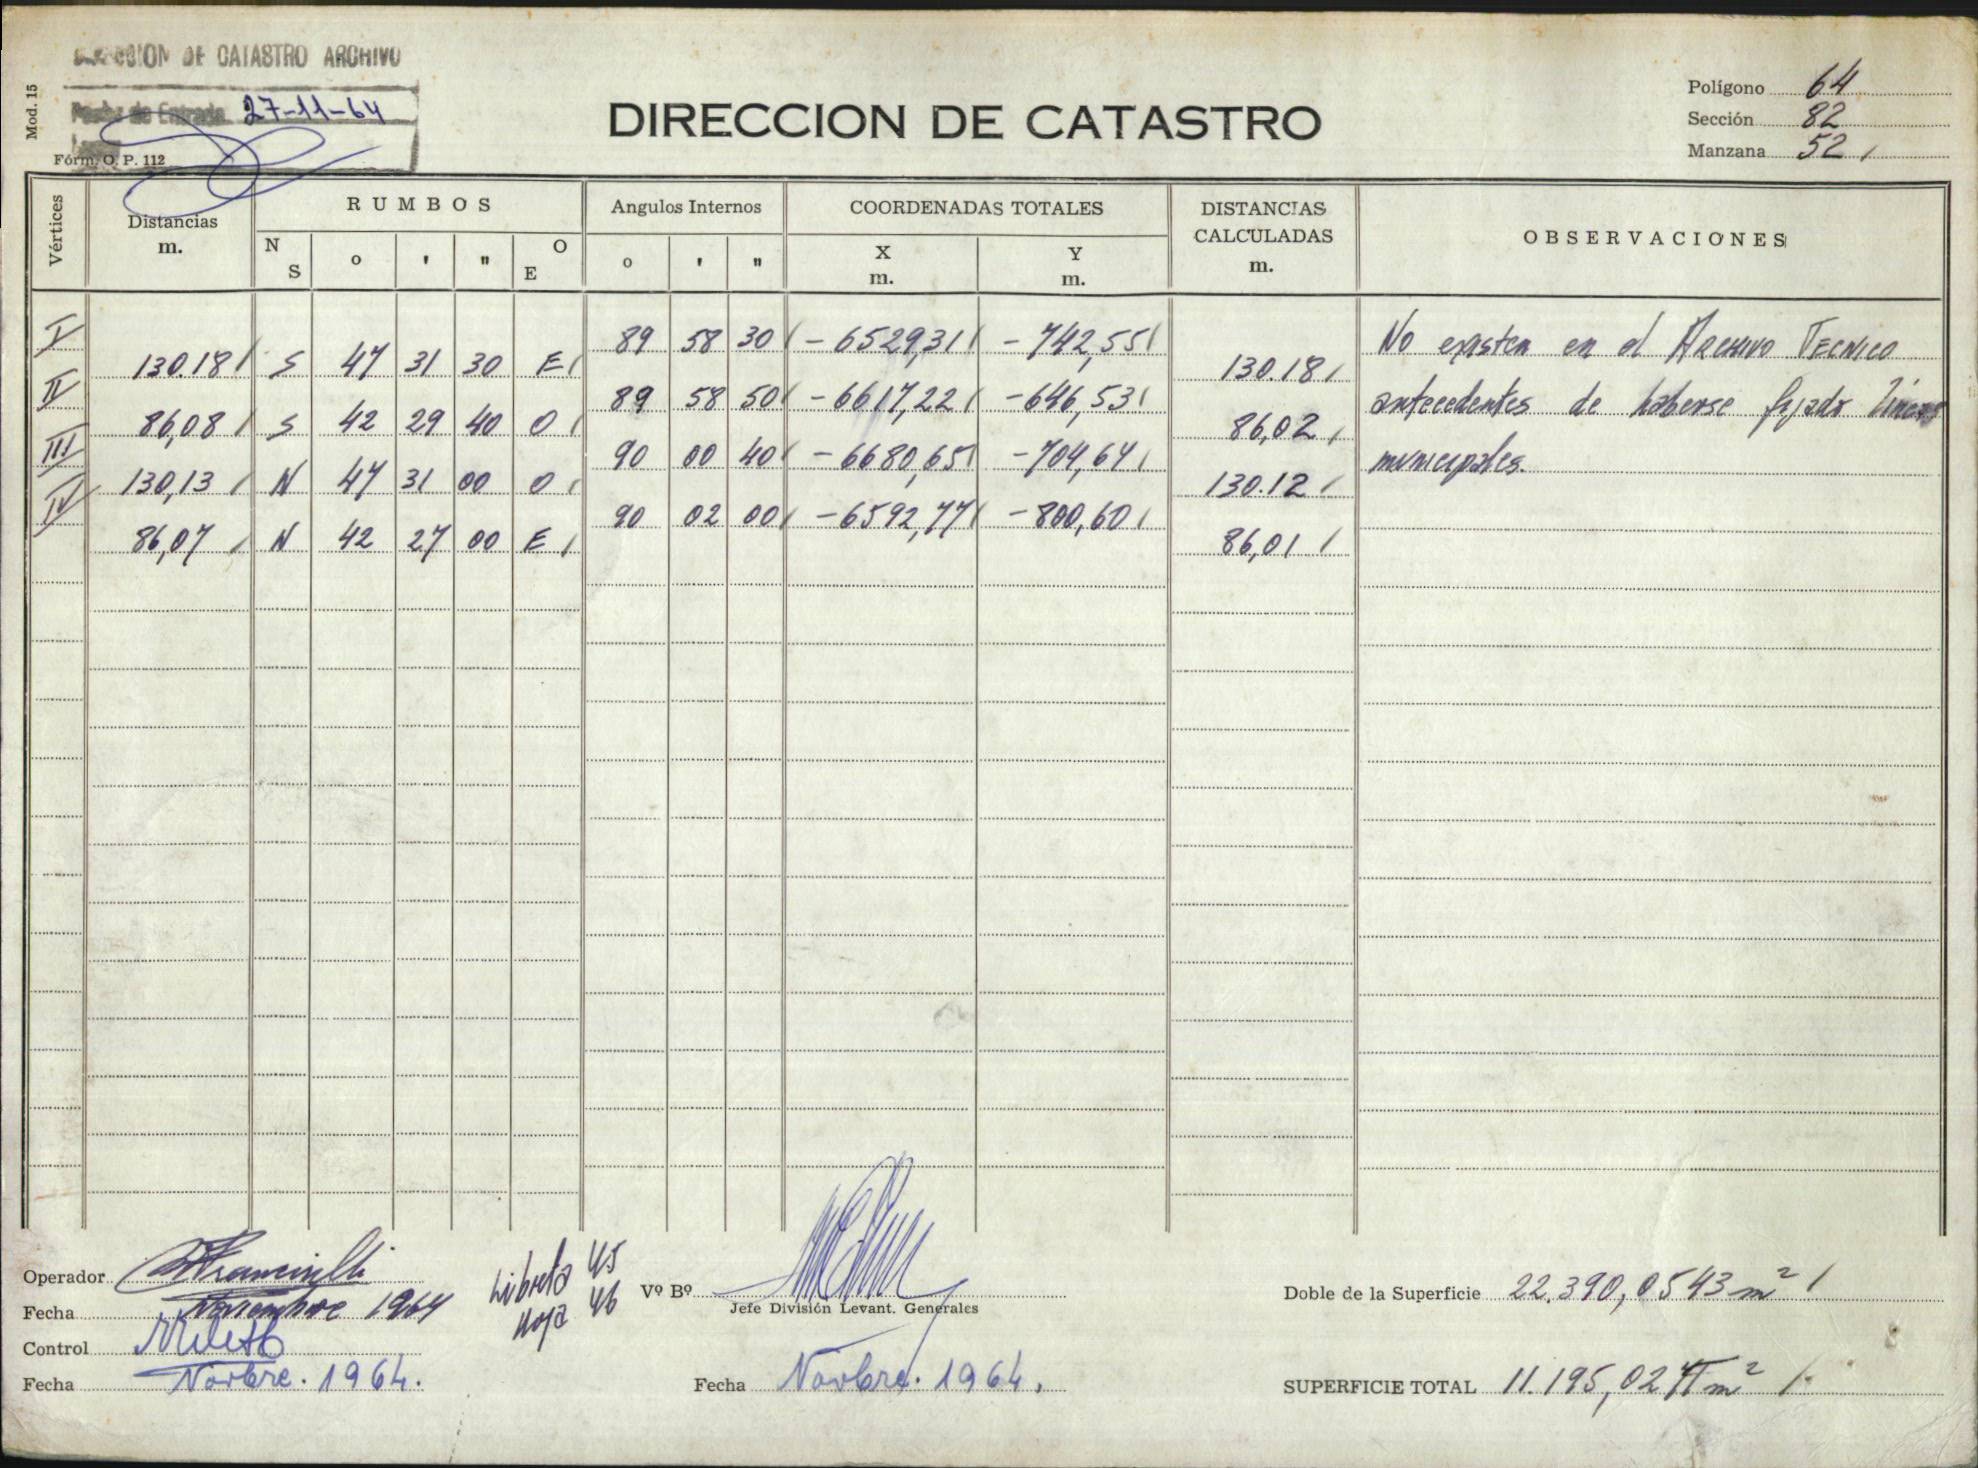 DIRECCION DE CATASTRO ARCHIVO
Mod. 15
Fecha de Entrada 27-11-64
Fórm. O. P. 112
DIRECCION DE CATASTRO
Polígono 64
Sección 82
Manzana 52
Vértices
Distancias m.
RUMBOS
N S o ' " O E
Angulos Internos
o ' "
COORDENADAS TOTALES
X m. Y m.
DISTANCIAS CALCULADAS m.
OBSERVACIONES
I 89 58 30 -6529,31 -742,55
130.18 S 47 31 30 E 130.18
II 89 58 50 -6617,22 -646,53
86,08 S 42 29 40 O 86,02
III 90 00 40 -6680,65 -704,64
130,13 N 47 31 00 O 130.12
IV 90 02 00 -6592,77 -800,60
86,07 N 42 27 00 E 86,01
No existen en el ARCHIVO TECNICO
antecedentes de haberse fijado líneas
municipales.
Operador
Fecha Noviembre 1964
Control
Fecha Novbre. 1964.
Libreta 45
Hoja 46
Vº Bº
Jefe División Levant. Generales
Fecha Novbre. 1964.
Doble de la Superficie 22.390,0543 m²
SUPERFICIE TOTAL 11.195,0271 m²